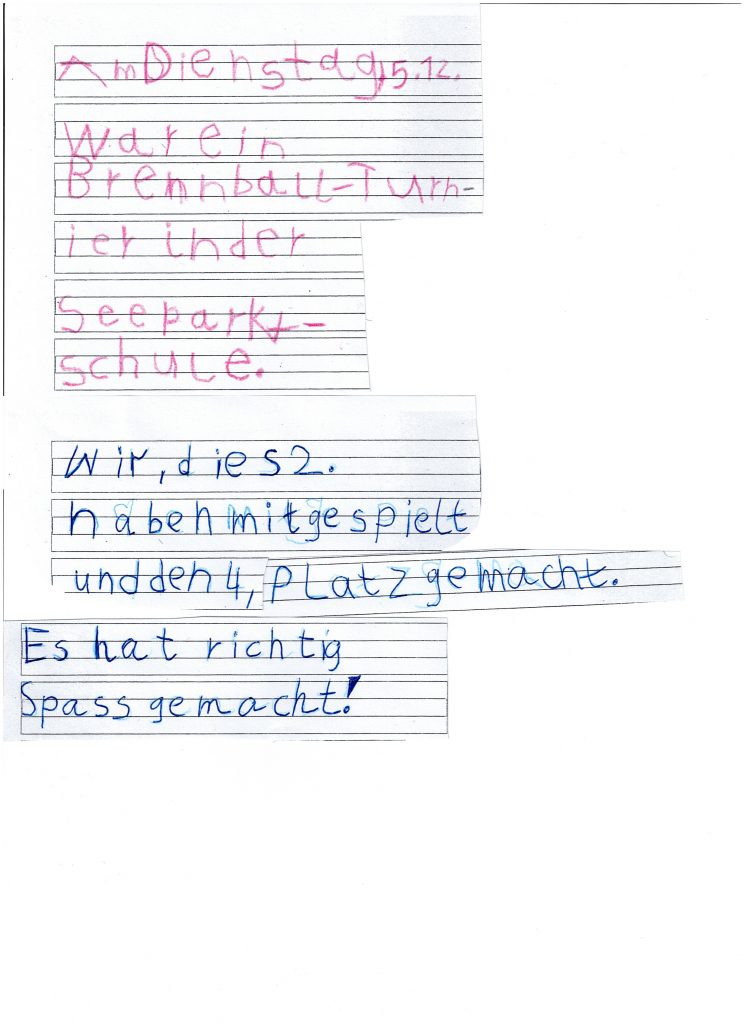 Am Dienstag, 5.12.
war ein
Brennball-Turn-
ier in der
Seepark-
schule.
Wir, die s2.
haben mitgespielt
und den 4, Platz gemacht.
Es hat richtig
Spass gemacht!